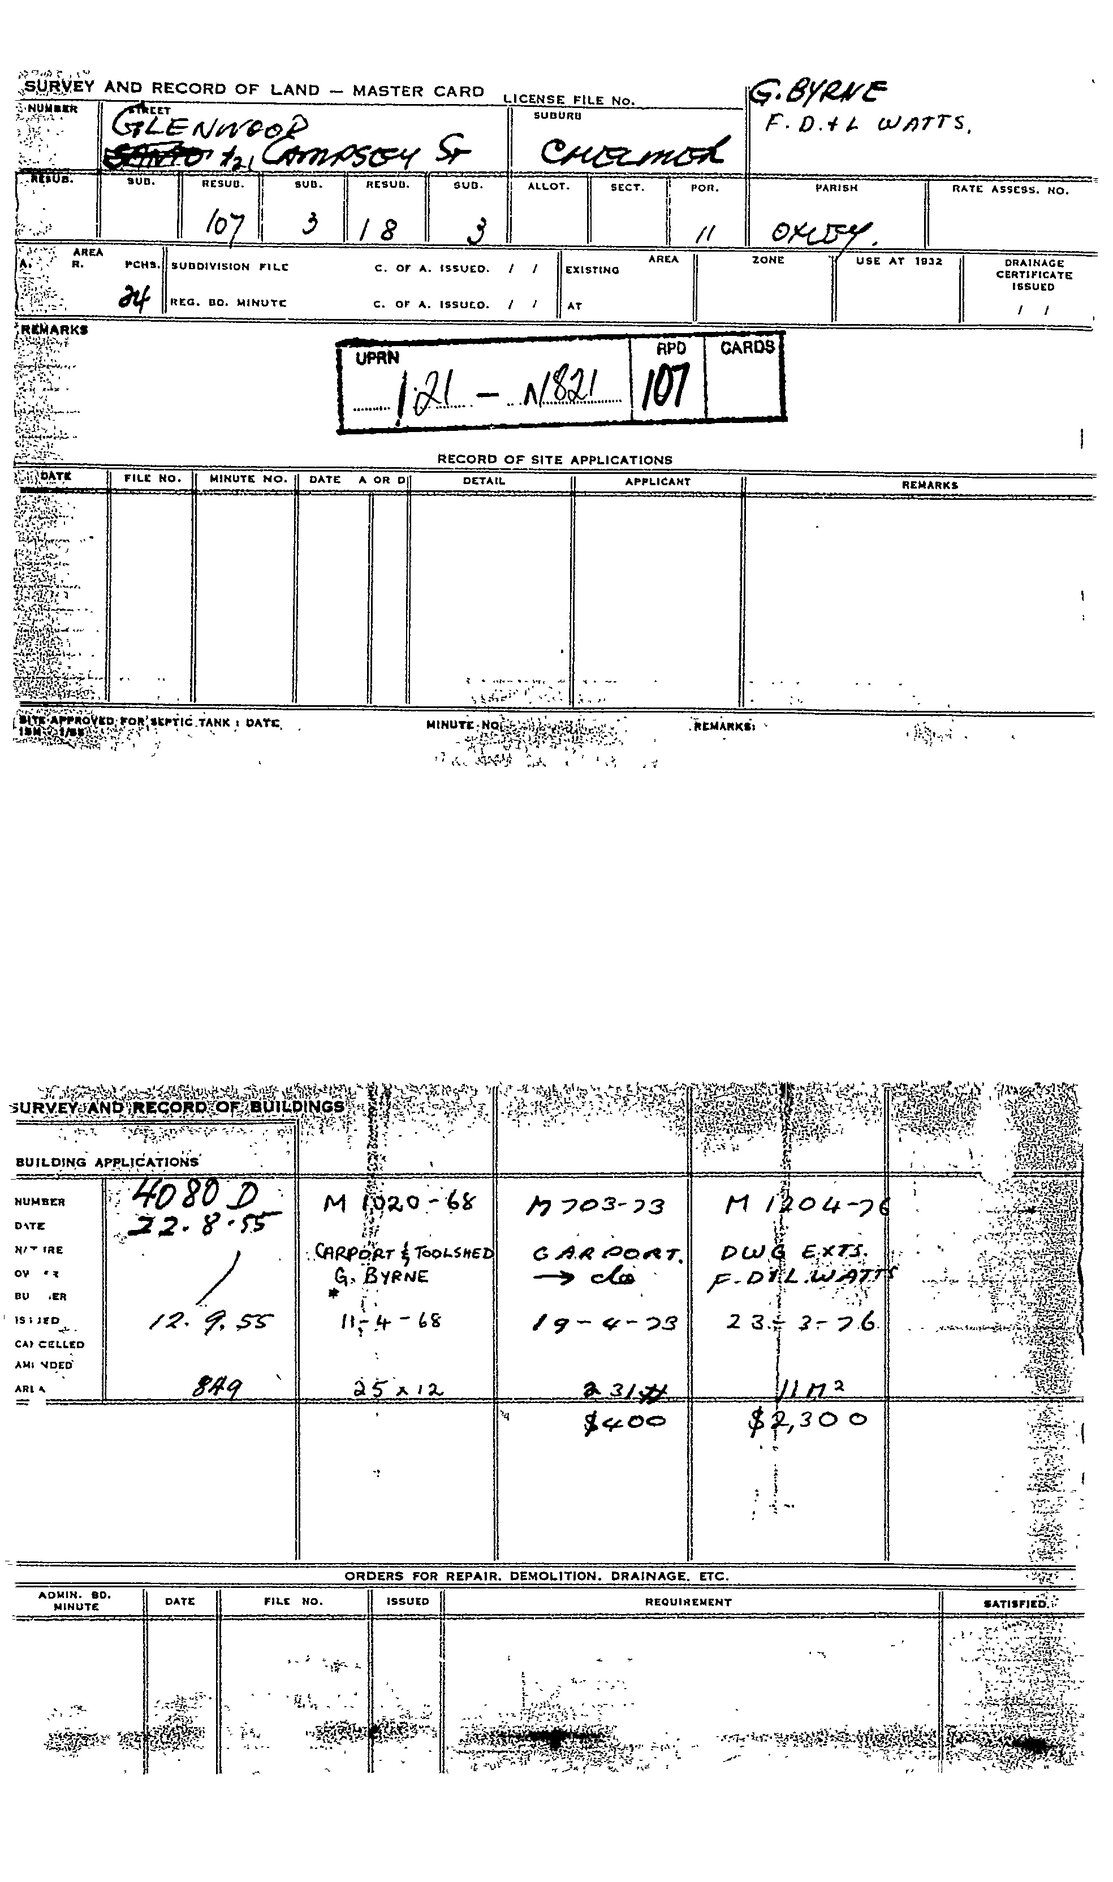 SURVEY AND RECORD OF LAND — MASTER CARD
LICENSE FILE No.
G. BYRNE
F. D. & L WATTS.
NUMBER STREET SUBURB
GLENWOOD
CAMPSEY ST CHELMER
RESUB. SUB. RESUB. SUB. RESUB. SUB. ALLOT. SECT. POR. PARISH RATE ASSESS. NO.
107 3 18 3 11 OXLEY.
AREA
A. R. PCHS. SUBDIVISION FILE C. OF A. ISSUED. / / EXISTING AREA ZONE USE AT 1932 DRAINAGE CERTIFICATE ISSUED
24 REG. BD. MINUTE C. OF A. ISSUED. / / AT / /
REMARKS
UPRN RPD CARDS
121 — N821 107
RECORD OF SITE APPLICATIONS
DATE FILE NO. MINUTE NO. DATE A OR D DETAIL APPLICANT REMARKS
SITE APPROVED FOR SEPTIC TANK: DATE MINUTE NO. REMARKS:
SURVEY AND RECORD OF BUILDINGS
BUILDING APPLICATIONS
NUMBER 4080 D M 1020-68 M 703-73 M 1204-76
DATE 22.8.55
CARPORT & TOOLSHED CARPORT. DWG EXTS.
G. BYRNE → do F. D & L. WATTS
*
ISSUED 12.9.55 11-4-68 19-4-73 23-3-76
CANCELLED
AMENDED
AREA 849 25 x 12 231 11 M2
$400 $2,300
ORDERS FOR REPAIR. DEMOLITION. DRAINAGE. ETC.
ADMIN. BD. MINUTE DATE FILE NO. ISSUED REQUIREMENT SATISFIED.